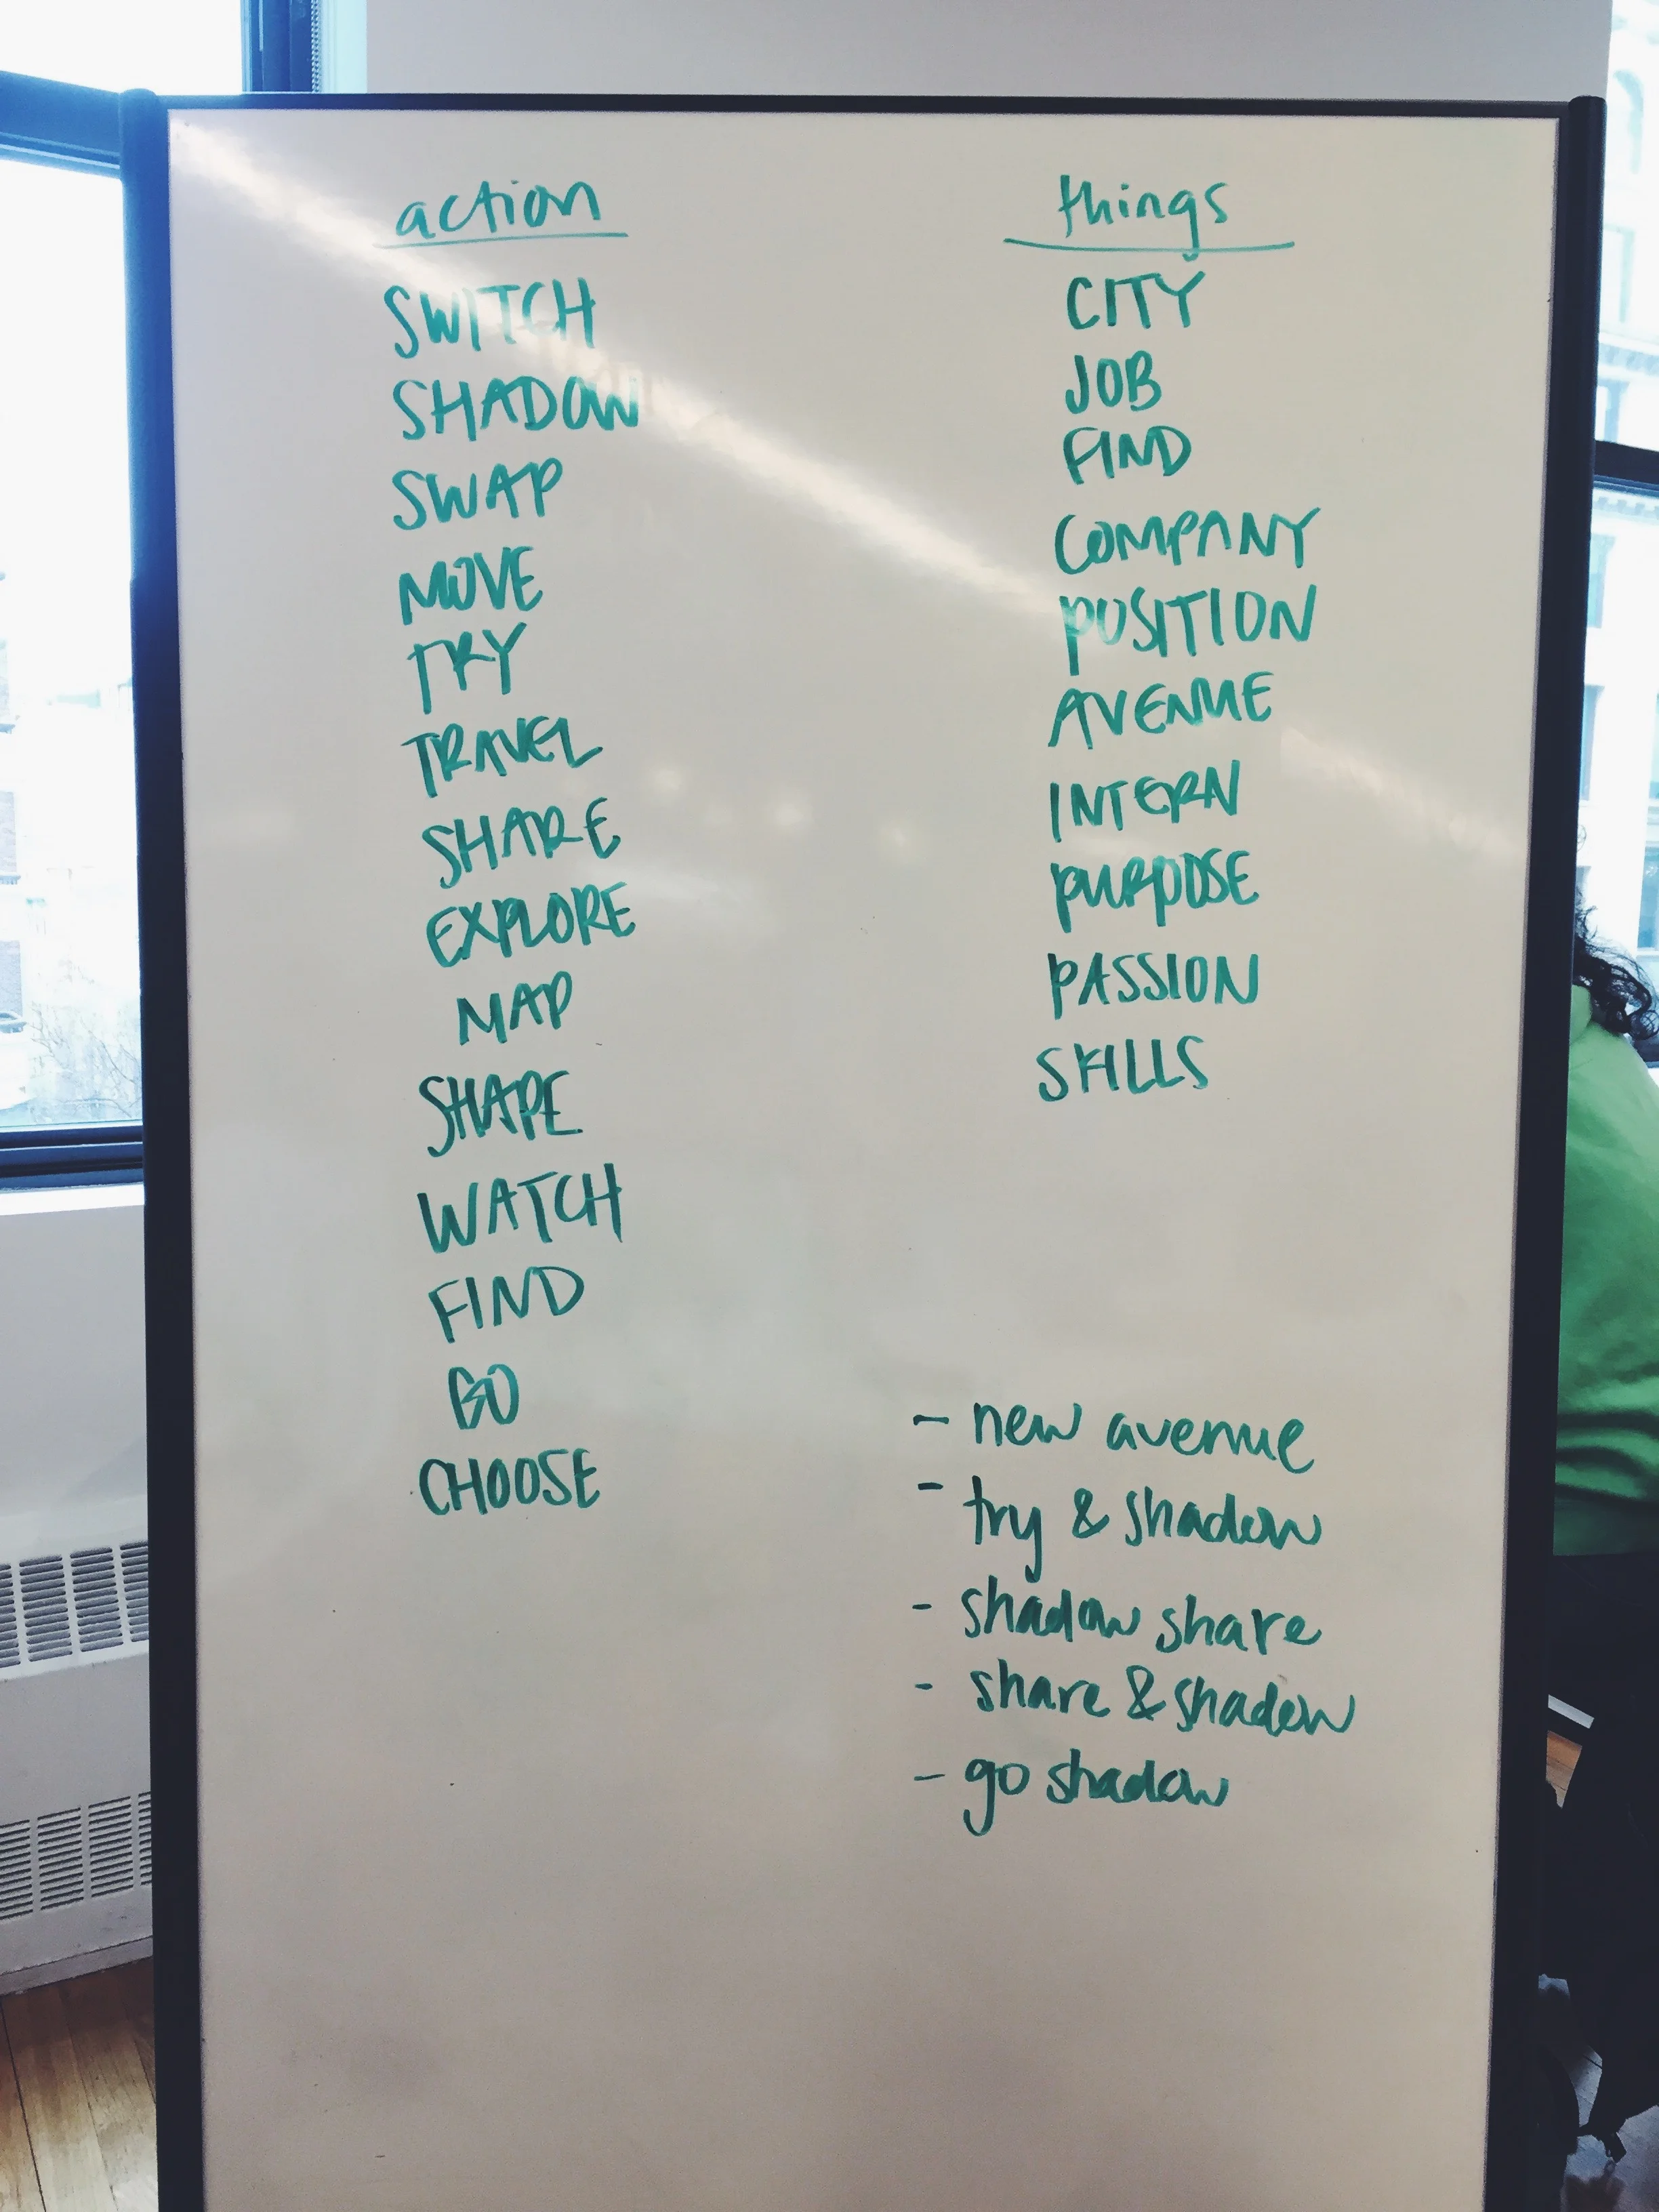 action
SWITCH
SHADOW
SWAP
MOVE
TRY
TRAVEL
SHARE
EXPLORE
MAP
SHAPE
WATCH
FIND
GO
CHOOSE
things
CITY
JOB
FIND
COMPANY
POSITION
AVENUE
INTERN
PURPOSE
PASSION
SKILLS
- new avenue
- try & shadow
- shadow share
- share & shadow
- go shadow